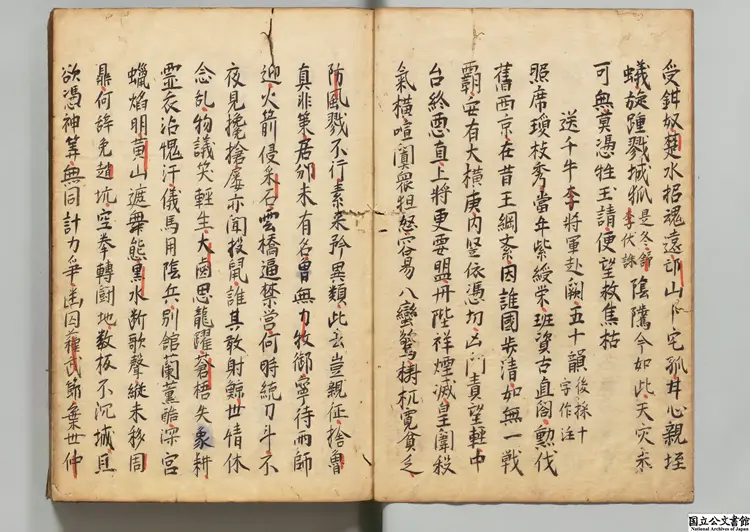 受鉗奴楚水招魂遠邙山卜宅孤甘心親垤
蟻旋踵戮城狐是冬舒李伏誅陰騭今如此天灾未
可無莫憑牲玉請便望救焦枯
送千牛李將軍赴闕五十韻後採十字作注
照席瓊枝秀當年紫綬栄班資古直閣勲伐
舊西京在昔王綱紊因誰國步清如無一戰
覇安有大橫庚内竪依憑切凶門責望輕中
台終悪直上將更要盟丹陛祥煙滅皇闈殺
氣橫喧闐衆狙怒容易八蠻驚檮杌寛貪乏
防風戮不行素来矜異類此去豈親征捨魯
真非策居邠未有名曽無力牧御寧待雨師
迎火箭侵乗石雲橋逼禁營何時絶刀斗不
夜見攙搶屢亦聞投鼠誰其敢射鯨世情休
念乱物議笑輕生大鹵思龍躍蒼梧失象耕
霊衣沾愧汗儀馬用陰兵別館蘭薫酷深宮
蠟焰明黄山遮舞態黒水断歌聲縦未移周
鼎何辞免趙坑空拳轉鬪地数板不沉城且
欲憑神筭無同計力爭幽囚蘓武節棄世仲
国立公文書館
National Archives of Japan